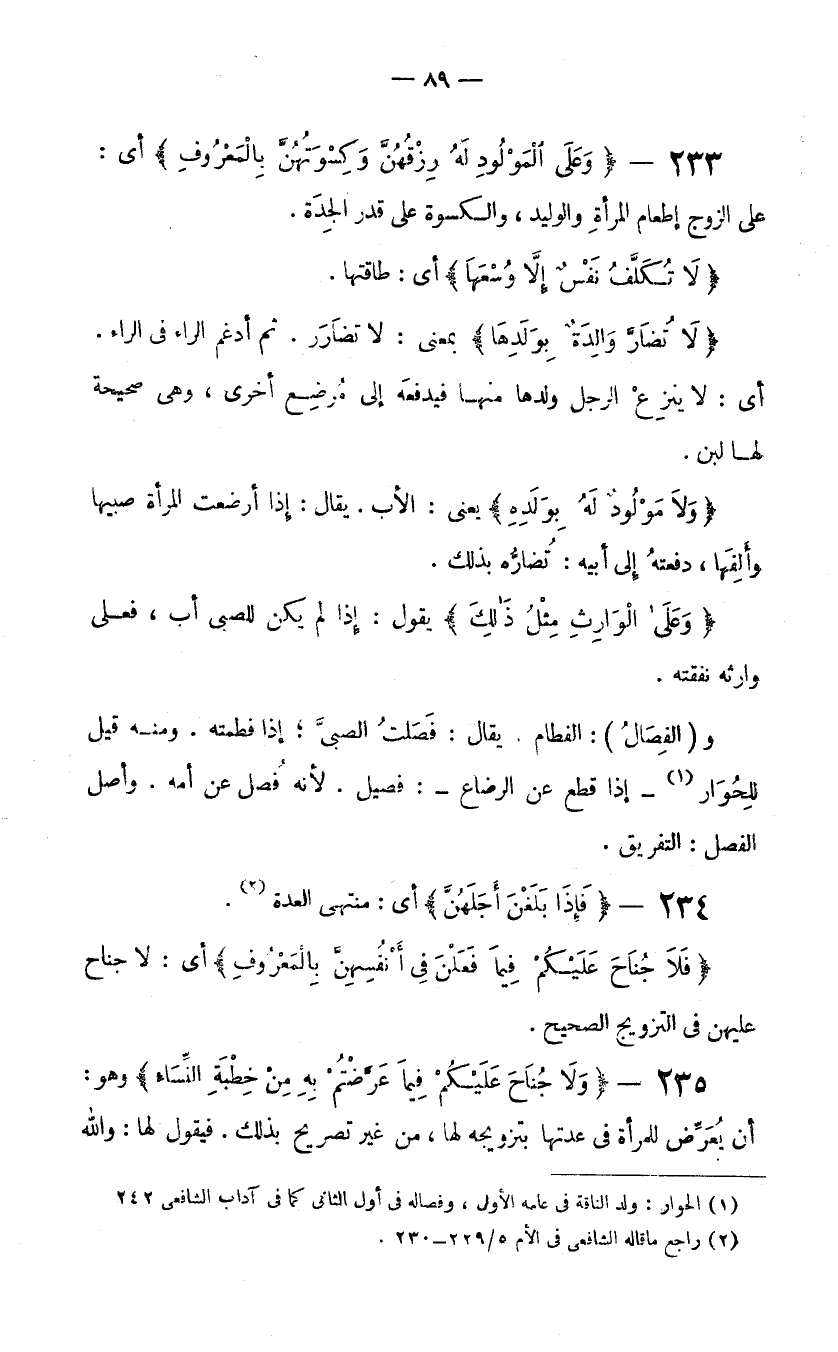 — ٨٩ —
٢٣٣ — ﴿ وَعَلَى ٱلْمَوْلُودِ لَهُ رِزْقُهُنَّ وَكِسْوَتُهُنَّ بِالْمَعْرُوفِ ﴾ أى :
على الزوج إطعام المرأةِ والوليد ، والكسوة على قدر الجِدَة .
﴿ لَا تُكَلَّفُ نَفْسٌ إِلَّا وُسْعَهَا ﴾ أى : طاقتها .
﴿ لَا تُضَارَّ وَالِدَةٌ بِوَلَدِهَا ﴾ بمعنى : لا تضَارَر . ثم أدغم الراء فى الراء .
أى : لا ينزعْ الرجل ولدها منها فيدفعَه إلى مُرضِع أخرى ، وهى صحيحة
لها لبن .
﴿ وَلَا مَوْلُودٌ لَهُ بِوَلَدِهِ ﴾ يعنى : الأب . يقال : إذا أرضعت المرأة صبيها
وأَلِفَها ، دفعتهُ إلى أبيه : تُضارُّه بذلك .
﴿ وَعَلَى الْوَارِثِ مِثْلُ ذَٰلِكَ ﴾ يقول : إذا لم يكن للصبى أب ، فعلى
وارثه نفقته .
و ( الفِصَالُ ) : الفطام . يقال : فَصَلتُ الصبىَّ ؛ إذا فطمته . ومنه قيل
للِحُوَار (١) – إذا قطع عن الرضاع – : فصيل . لأنه فُصل عن أمه . وأصل
الفصل : التفريق .
٢٣٤ — ﴿ فَإِذَا بَلَغْنَ أَجَلَهُنَّ ﴾ أى : منتهى العدة (٢) .
﴿ فَلَا جُنَاحَ عَلَيْكُمْ فِيمَا فَعَلْنَ فِى أَنْفُسِهِنَّ بِالْمَعْرُوفِ ﴾ أى : لا جناح
عليهن فى التزويج الصحيح .
٢٣٥ — ﴿ وَلَا جُنَاحَ عَلَيْكُمْ فِيمَا عَرَّضْتُمْ بِهِ مِنْ خِطْبَةِ النِّسَاء ﴾ وهو :
أن يُعَرِّض للمرأة فى عدتها بتزويجه لها ، من غير تصريح بذلك . فيقول لها : والله
(١) الحوار : ولد الناقة فى عامه الأولى ، وفصاله فى أول الثانى كما فى آداب الشافعى ٢٤٢
(٢) راجع ماقاله الشافعى فى الأم ٢٢٩/٥–٢٣٠ .